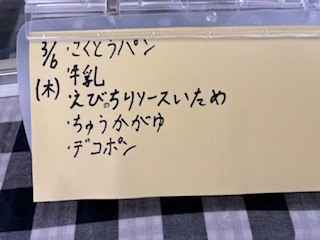 3/6 ・こくとうパン
(木) ・牛乳
・えびのちりソースいため
・ちゅうかがゆ
・デコポン